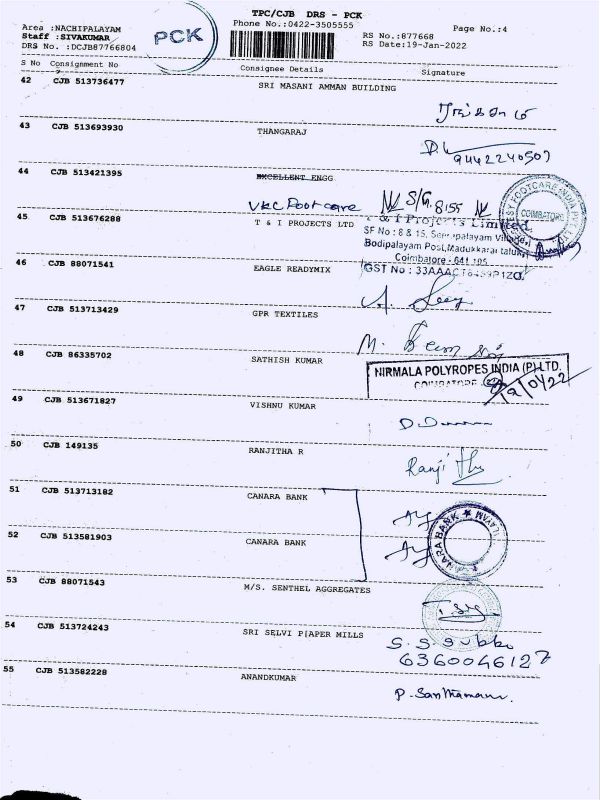 TPC/CJB DRS - PCK
Area :NACHIPALAYAM
Phone No.:0422-3505555
Page No.:4
Staff :SIVAKUMAR
RS No.:877668
DRS No. :DCJB87766804
PCK
RS Date:19-Jan-2022
S No Consignment No Consignee Details Signature
42 CJB 513736477 SRI MASANI AMMAN BUILDING
43 CJB 513693930 THANGARAJ
9442240507
44 CJB 513421395 EXCELLENT ENGG
VKC Footcare S/G. 8155
FOOTCARE INDIA
COIMBATORE
45 CJB 513676288 T & I PROJECTS LTD
T & I Projects Limited,
SF No : 8 & 15, Village,
Bodipalayam Post, Madukkarai taluk,
Coimbatore - 641 105
GST No :
46 CJB 88071541 EAGLE READYMIX
47 CJB 513713429 GPR TEXTILES
48 CJB 86335702 SATHISH KUMAR
NIRMALA POLYROPES INDIA (P) LTD.
COIMBATORE
49 CJB 513671827 VISHNU KUMAR
50 CJB 149135 RANJITHA R
Ranji
51 CJB 513713182 CANARA BANK
52 CJB 513581903 CANARA BANK
53 CJB 88071543 M/S. SENTHEL AGGREGATES
54 CJB 513724243 SRI SELVI P|APER MILLS
S. S. Subbu
6360046127
55 CJB 513582228 ANANDKUMAR